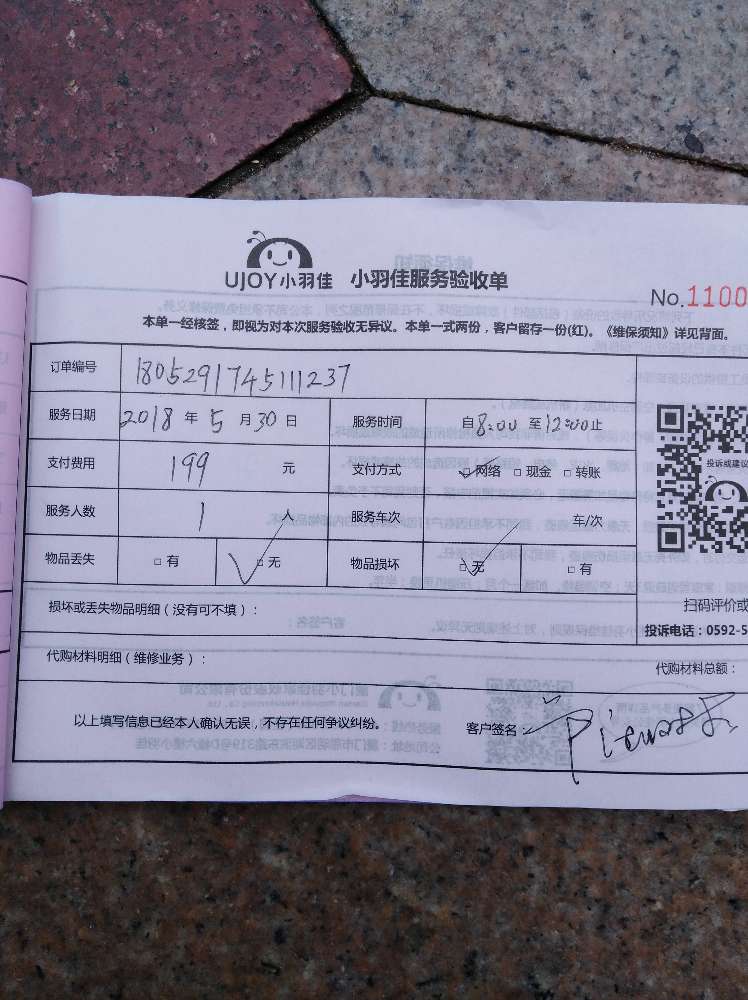 UJOY小羽佳 小羽佳服务验收单
No.1100
本单一经核签，即视为对本次服务验收无异议。本单一式两份，客户留存一份(红)。《维保须知》详见背面。
订单编号 1805291745111237
服务日期 2018 年 5 月 30 日 服务时间 自8:00 至 12:00止
支付费用 199 元 支付方式 □网络 □现金 □转账
投诉或建议
服务人数 1 人 服务车次 车/次
物品丢失 □有 □无 物品损坏 □无 □有
损坏或丢失物品明细（没有可不填）：
扫码评价或
投诉电话：0592-5
代购材料明细（维修业务）：
代购材料总额：
以上填写信息已经本人确认无误，不存在任何争议纠纷。
客户签名：